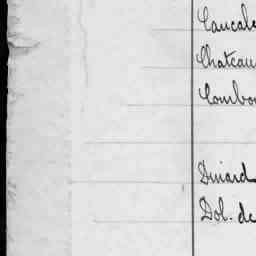 Cancale
Chateau
Combou
Dinard
Dol. de